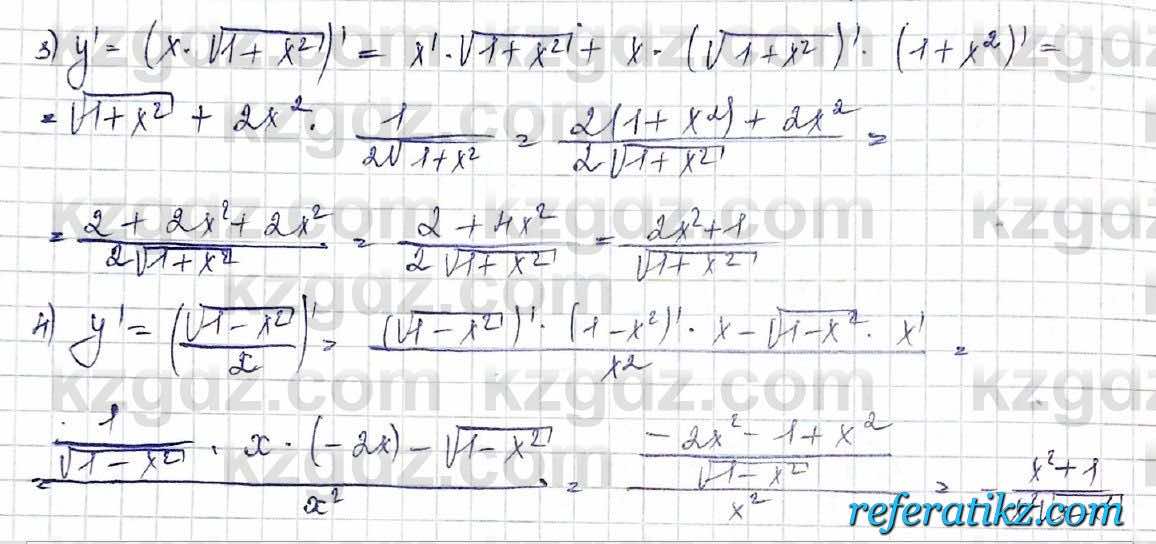 3) y' = (x · √(1+x²))' = x' · √(1+x²) + x · (√(1+x²))' · (1+x²)' =
= √(1+x²) + 2x² · 1/(2√(1+x²)) = (2(1+x²)+2x²)/(2√(1+x²)) =
= (2+2x²+2x²)/(2√(1+x²)) = (2+4x²)/(2√(1+x²)) = (2x²+1)/√(1+x²)
4) y' = (√(1-x²)/x)' = ((√(1-x²))' · (1-x²)' · x - √(1-x²) · x')/x² =
= (1/√(1-x²) · x · (-2x) - √(1-x²))/x² = ((-2x²-1+x²)/√(1-x²))/x² = - (x²+1)/
kzgdz.com
referatikz.com